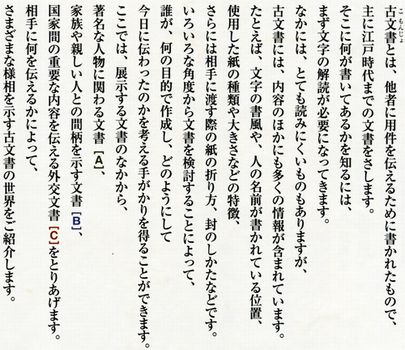 古文書とは、他者に用件を伝えるために書かれたもので、
こもんじょ
主に江戸時代までの文書をさします。
そこに何が書いてあるかを知るには、
まず文字の解読が必要になってきます。
なかには、とても読みにくいものもありますが、
古文書には、内容のほかにも多くの情報が含まれています。
たとえば、文字の書風や、人の名前が書かれている位置、
使用した紙の種類や大きさなどの特徴、
さらには相手に渡す際の紙の折り方、封のしかたなどです。
いろいろな角度から文書を検討することによって、
誰が、何の目的で作成し、どのようにして
今日に伝わったのかを考える手がかりを得ることができます。
ここでは、展示する文書のなかから、
著名な人物に関わる文書［A］、
家族や親しい人との間柄を示す文書［B］、
国家間の重要な内容を伝える外交文書［C］をとりあげます。
相手に何を伝えるかによって、
さまざまな様相を示す古文書の世界をご紹介します。